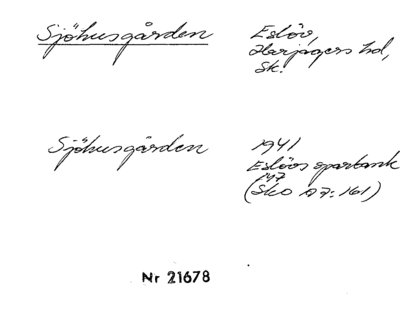 Sjöhusgården
Eslöv,
Harjagers hd,
Sk.
Sjöhusgården
1941
Eslövs sparbank
47
(Sko A7:161)
Nr 21678